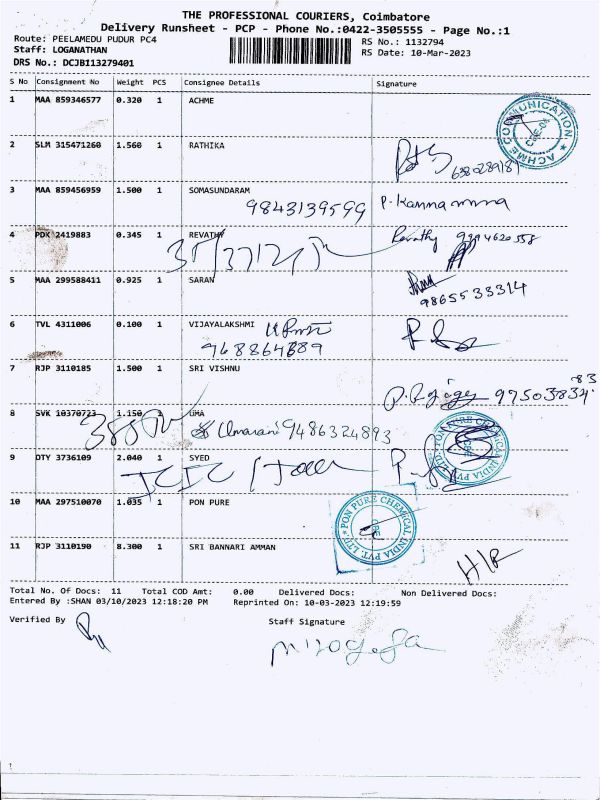 THE PROFESSIONAL COURIERS, Coimbatore
Delivery Runsheet - PCP - Phone No.:0422-3505555 - Page No.:1
Route: PEELAMEDU PUDUR PC4
RS No.: 1132794
Staff: LOGANATHAN
RS Date: 10-Mar-2023
DRS No.: DCJB113279401
S No Consignment No Weight PCS Consignee Details Signature
1 MAA 859346577 0.320 1 ACHME
ACHME COMMUNICATION
2 SLM 315471260 1.560 1 RATHIKA
3 MAA 859456959 1.500 1 SOMASUNDARAM
9843139599 P. Kannamma
4 PDK 2419883 0.345 1 REVATHY Revathy 9994620558
5 MAA 299588411 0.925 1 SARAN
9865533314
6 TVL 4311006 0.100 1 VIJAYALAKSHMI
7 RJP 3110185 1.500 1 SRI VISHNU
8 SVK 10370723 1.150 1 UMA
Umarani 9486324893
9 DTY 3736109 2.040 1 SYED
PON PURE CHEMICAL INDIA PVT. LTD.
10 MAA 297510070 1.035 1 PON PURE
PON PURE CHEMICAL INDIA PVT. LTD.
11 RJP 3110190 8.300 1 SRI BANNARI AMMAN
Total No. Of Docs: 11 Total COD Amt: 0.00 Delivered Docs: Non Delivered Docs:
Entered By :SHAN 03/10/2023 12:18:20 PM Reprinted On: 10-03-2023 12:19:59
Verified By
Staff Signature